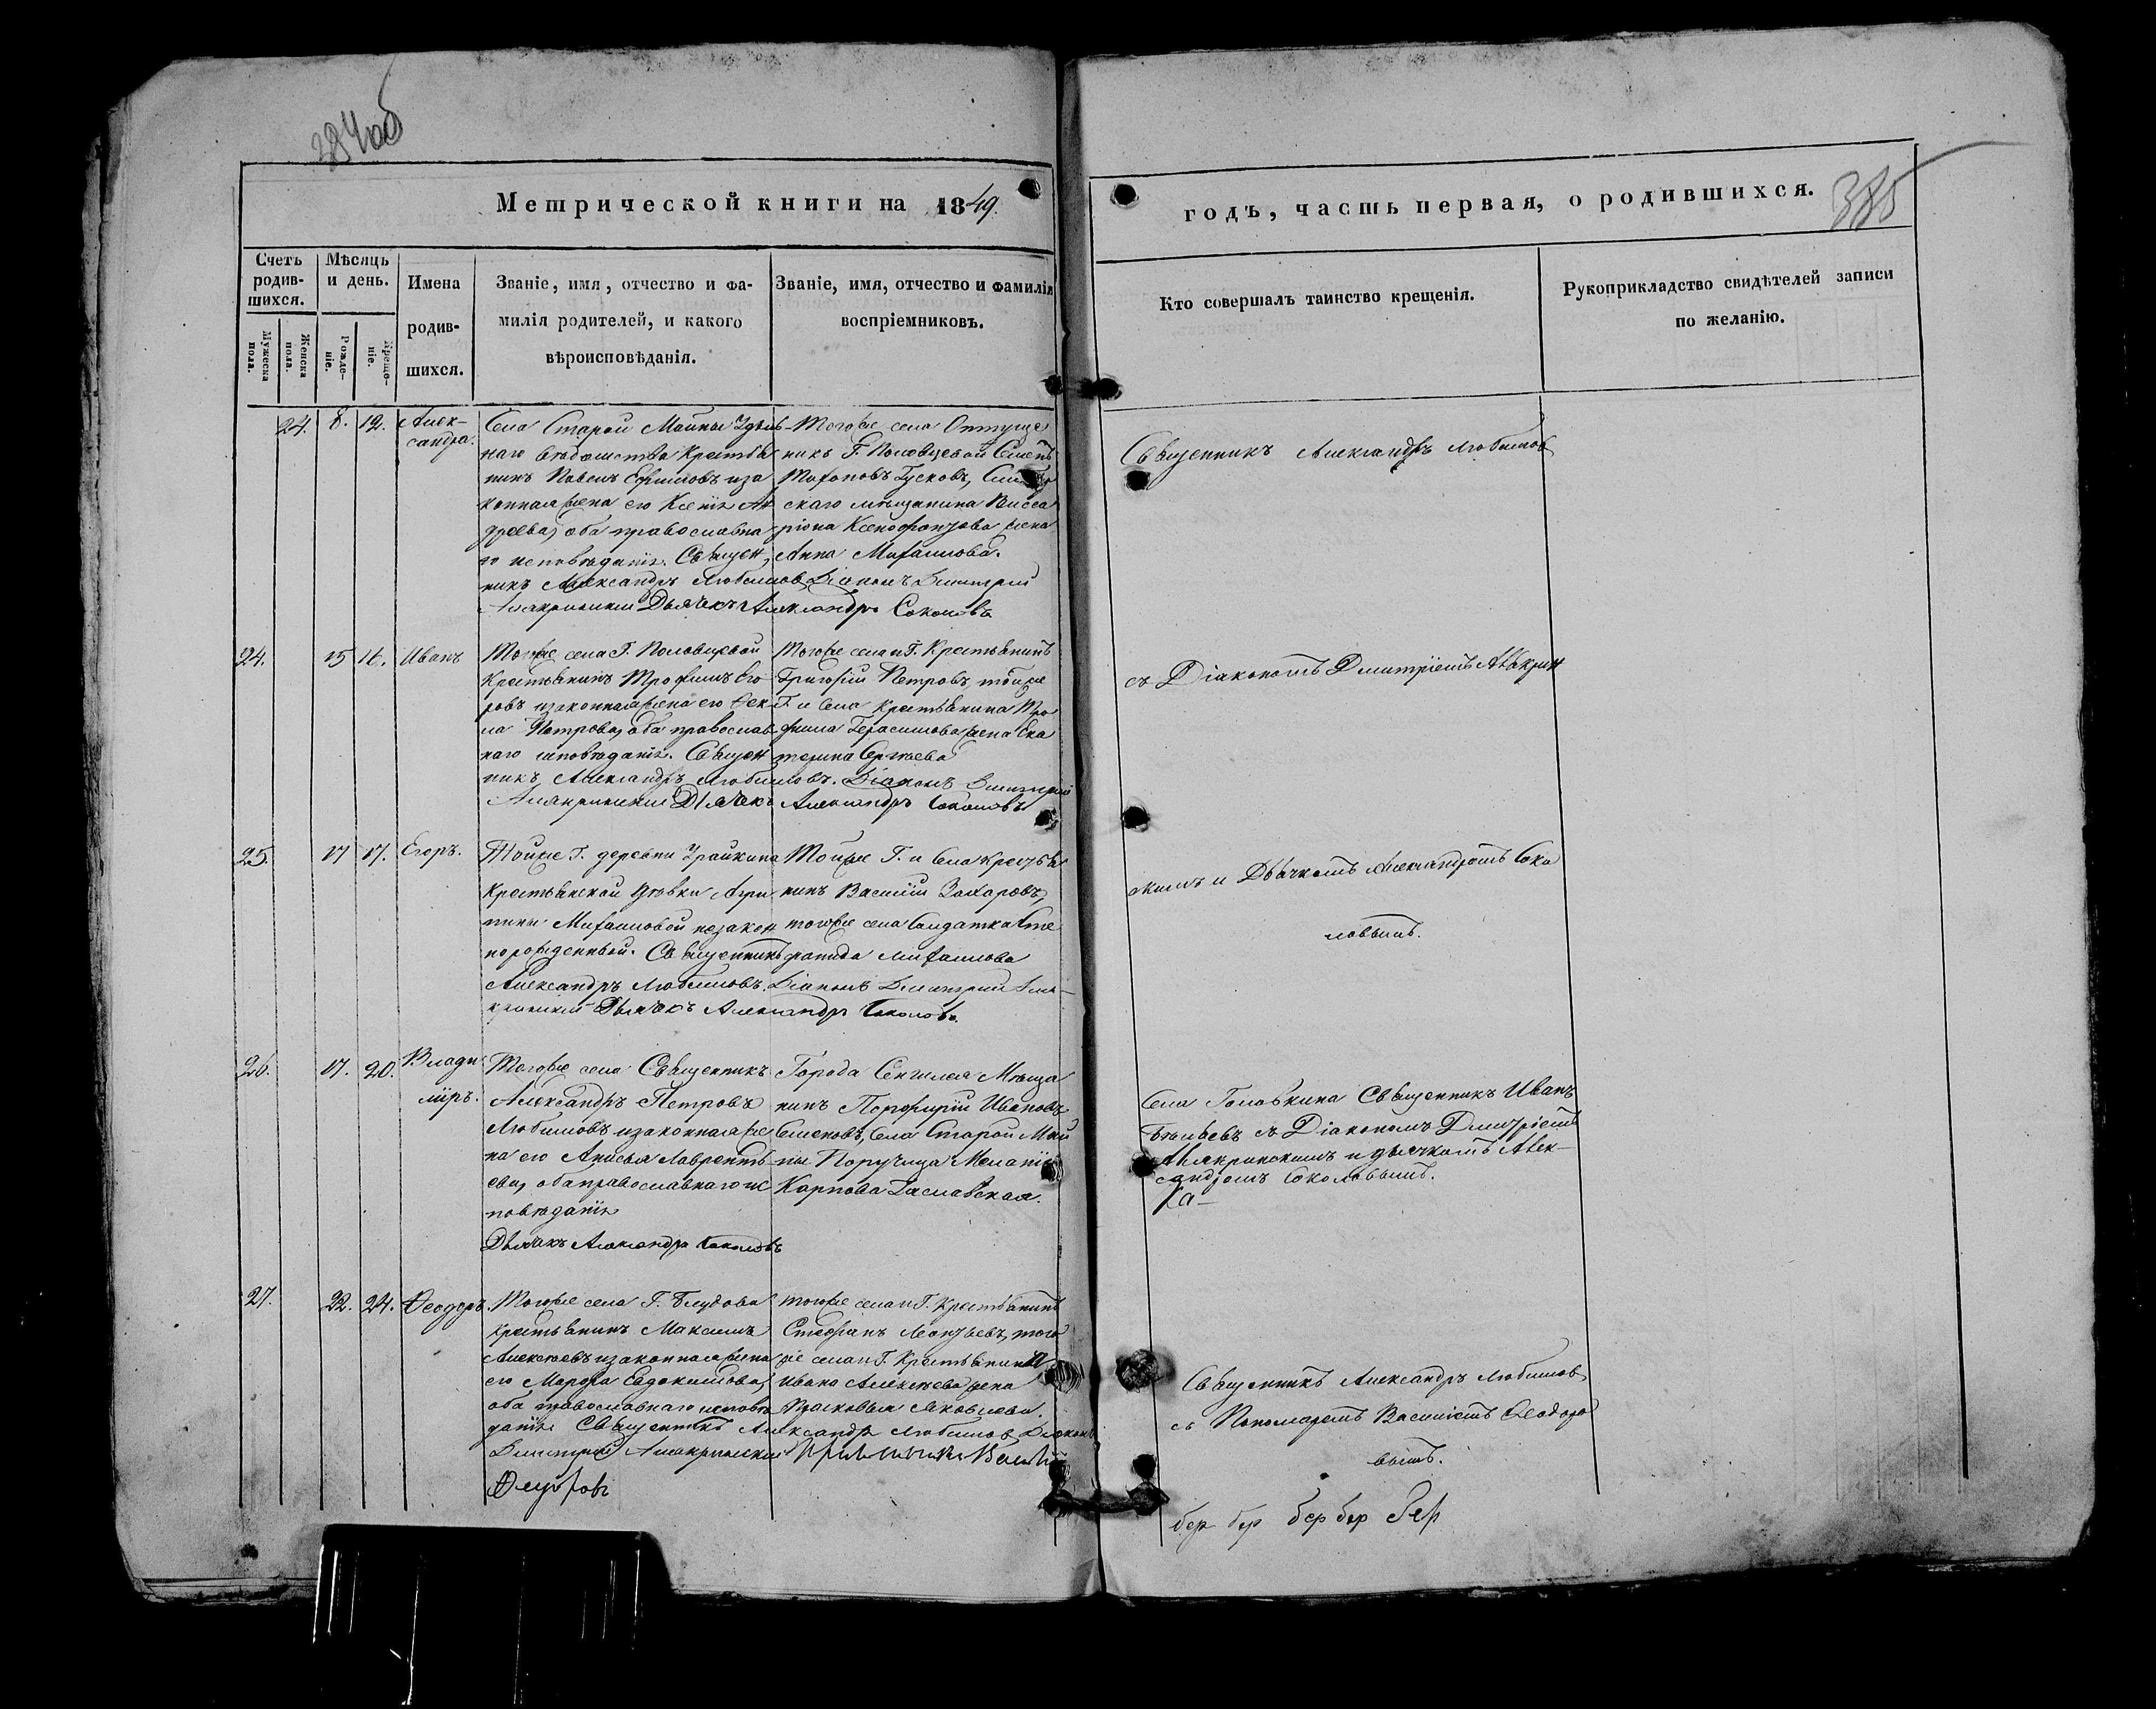 284об
385
Метрической книги на 1849.
годъ, часть первая, о родившихся.
Счетъ родив-шихся.
Мѣсяцъ и день.
Имена родив-шихся.
Званіе, имя, отчество и фа-
милія родителей, и какого
вѣроисповѣданія.
Званіе, имя, отчество и фамилія
воспріемниковъ.
Кто совершалъ таинство крещенія.
Рукоприкладство свидѣтелей записи
по желанію.
Мужеска пола.
Женска пола.
Рожде-ніе.
Креще-ніе.
24. 8. 12. Алек-
сандра.
Села Старой Майны Удѣль
наго вѣдомства крестья
нинъ Павелъ Ефимовъ и за
конная жена его Ксенія Ан
дреева, оба православна
го исповѣданія. Священ
никъ Александръ Любимов Діаконъ Дмитрій
Алякринскій Дьячекъ Александръ Соколовъ
Тогоже села Отпуще
никъ Г. Половцевой Семенъ
Гусковъ,
скаго мѣщанина Висса
ріона Ксенофонтова жена
Анна Михаилова.
Священникъ Александръ Любимов
24. 15 16. Иванъ
Тогоже села Г. Половцевой
Крестьянинъ Трофимъ Его
ровъ и законная жена его Фек
ла Петрова, оба православ
наго исповѣданія. Священ
никъ Александръ Любимовъ. Діаконъ Дмитрій
Алякринскій Дьячекъ Александръ Соколовъ
Тогоже села и Г. Крестьянинъ
Григорій Петровъ, тойже
Г. и села крестьянина Тро
фима Герасимова жена Ека
терина Сергѣева
съ Діакономъ Дмитріемъ Алякрин
25. 17 17. Егоръ.
Тойже Г. деревни Урайкина
Крестьянской дѣвки Агри
пины Михаиловой незакон
норожденный. Священникъ
Александръ Любимовъ. Діаконъ Дмитрий Аля-
кринскій Дьячекъ Александръ Соколовъ.
Тойже Г. и села крестья
нинъ Василій Захаровъ,
тогоже села солдатка Сте
фанида Михаилова
скимъ и Дьячкомъ Александромъ Соко
ловымъ.
26. 17. 20. Влади
міръ.
Тогоже села Священникъ
Александръ Петровъ
Любимовъ и законная же
на его Анисья Лаврентье
ва, оба православнаго ис
повѣданія
Дьячекъ Александръ Соколовъ
Города Сенгилея Мѣща
нинъ Порфирій Ивановъ
Семеновъ, Села Старой Май
ны Поручица Меланія
Карпова
Села Головкина Священникъ Иванъ
Бѣляевъ съ Діакономъ Дмитріемъ
Алякринскимъ и дьячкомъ Алек-
сандромъ Соколовымъ.
27. 22. 24. Ѳеодоръ.
Тогоже села Г. Блудова
крестьянинъ Максимъ
Алексѣевъ и законная жена
его Марфа Евдокимова,
оба православнаго исповѣ
данія Священникъ Александръ Любимов Діаконъ
Дмитрий Алякринский Василій
Ѳедоровъ
тогоже села и Г. Крестьянинъ
Стефанъ Леонтьевъ, того
же села и Г. Крестьянина
Ивана Алексѣева жена
Яковлева.
Священникъ Александръ Любимовъ
съ Пономаремъ Василіемъ Ѳеодоро
вымъ.